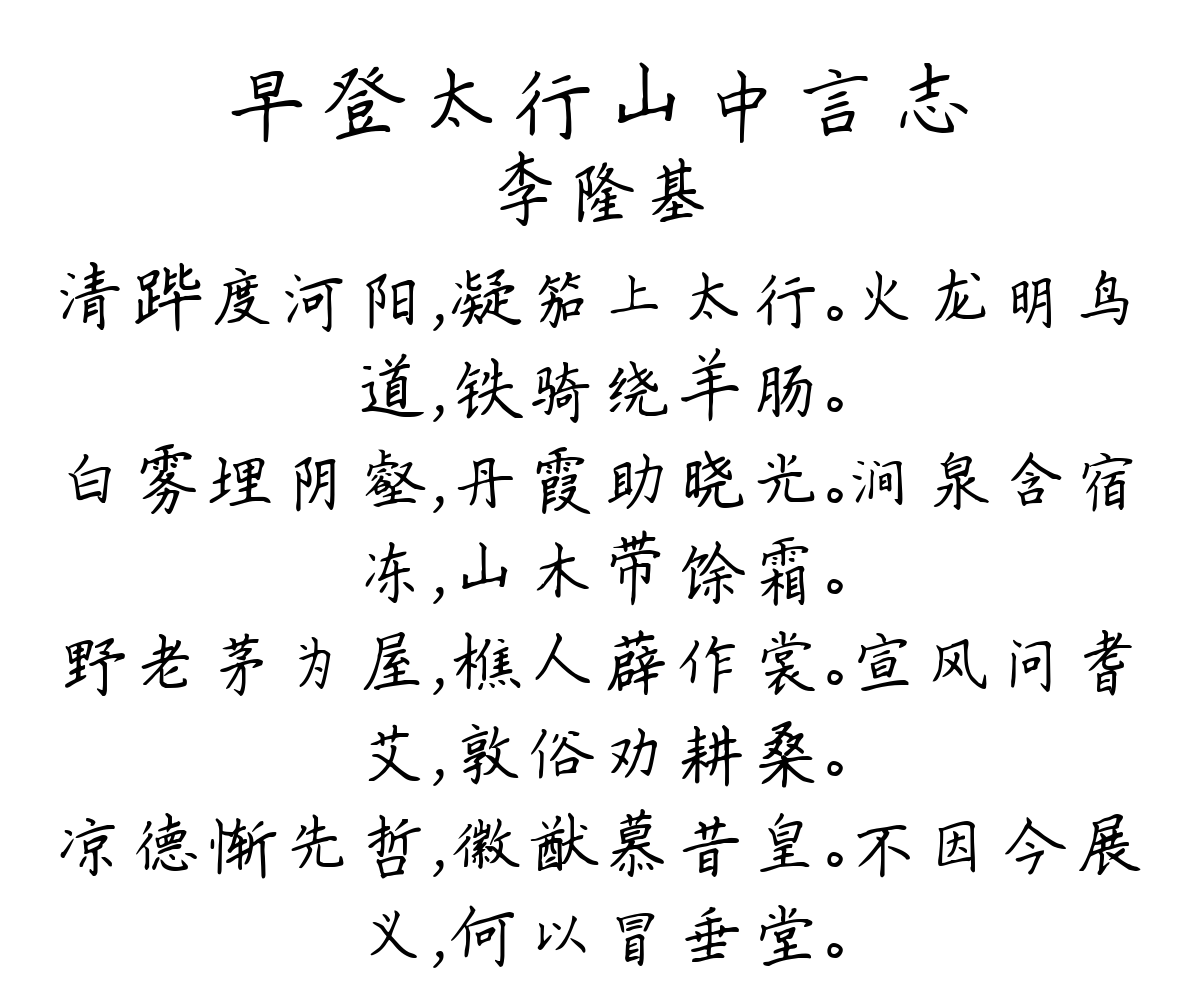 早登太行山中言志
李隆基
清跸度河阳,凝笳上太行。火龙明鸟
道,铁骑绕羊肠。
白雾埋阴壑,丹霞助晓光。涧泉含宿
冻,山木带馀霜。
野老茅为屋,樵人薜作裳。宣风问耆
艾,敦俗劝耕桑。
凉德惭先哲,徽猷慕昔皇。不因今展
义,何以冒垂堂。